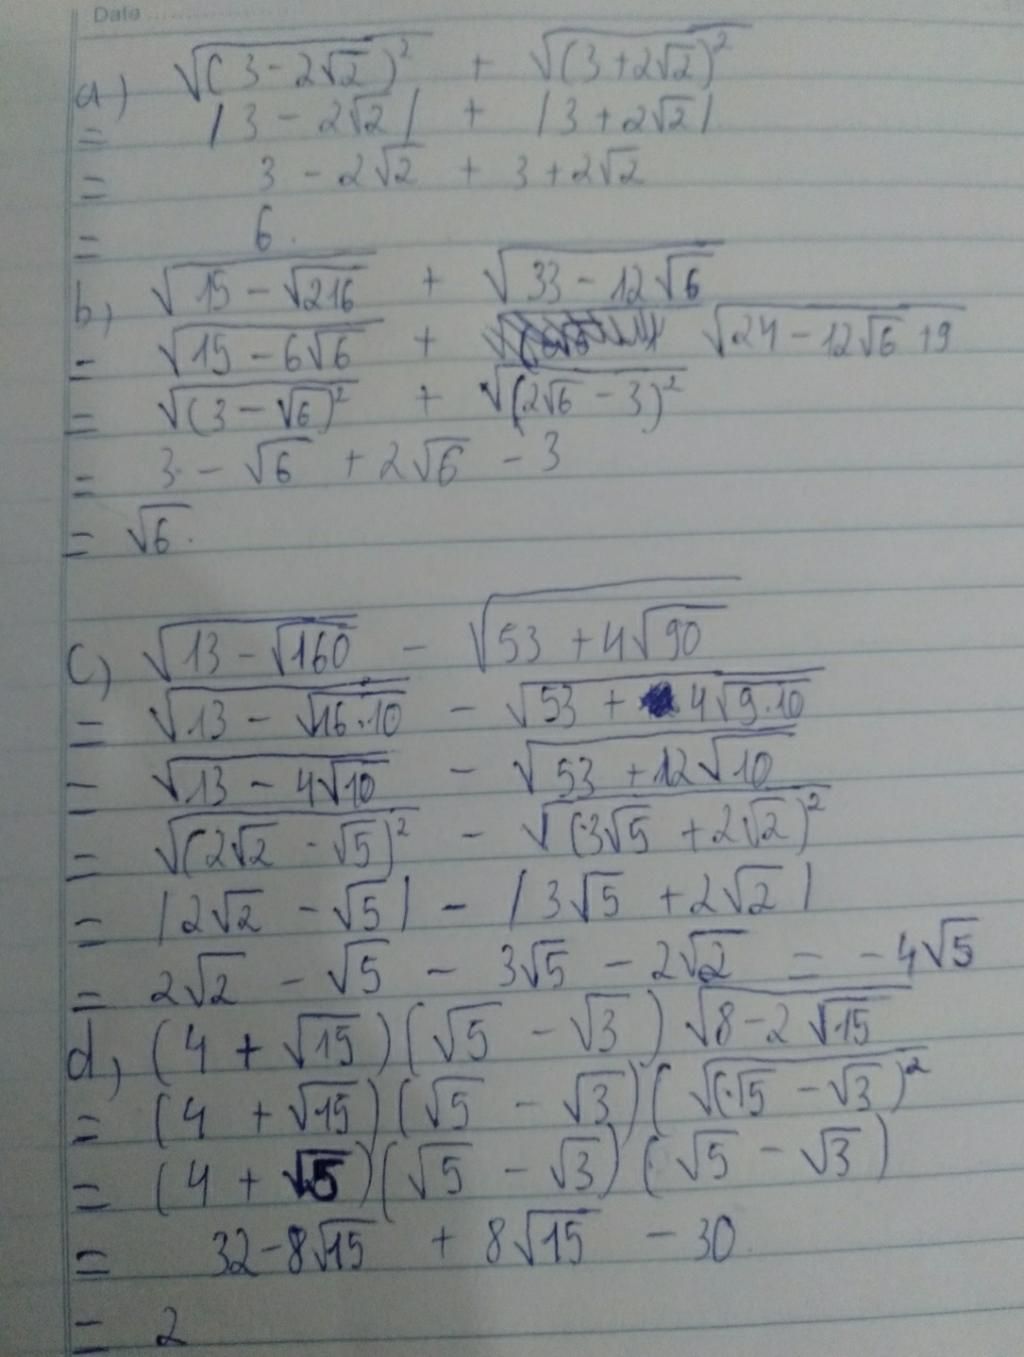 Date
a) √(3 - 2√2)² + √(3 + 2√2)²
= |3 - 2√2| + |3 + 2√2|
= 3 - 2√2 + 3 + 2√2
= 6.
b, √15 - √216 + √33 - 12√6
= √15 - 6√6 + √24 - 12√6 + 9
= √(3 - √6)² + √(2√6 - 3)²
= 3 - √6 + 2√6 - 3
= √6.
c, √13 - √160 - √53 + 4√90
= √13 - √16.10 - √53 + 4√9.10
= √13 - 4√10 - √53 + 12√10
= √(2√2 - √5)² - √(3√5 + 2√2)²
= |2√2 - √5| - |3√5 + 2√2|
= 2√2 - √5 - 3√5 - 2√2 = -4√5
d, (4 + √15)(√5 - √3)√8 - 2√15
= (4 + √15)(√5 - √3)(√(√5 - √3)²
= (4 + √15)(√5 - √3)(√5 - √3)
= 32 - 8√15 + 8√15 - 30
= 2